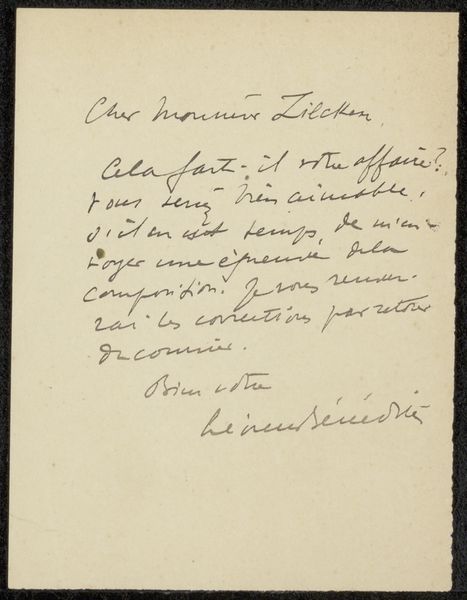 Cher Monsieur Zilcken,
Cela fait-il votre affaire?
Vous seriez bien aimable,
s'il en est temps de m'en-
voyer une épreuve de la
composition. Je vous renver-
rai les corrections par retour
du courrier.
Bien votre
Léonce Bénédite